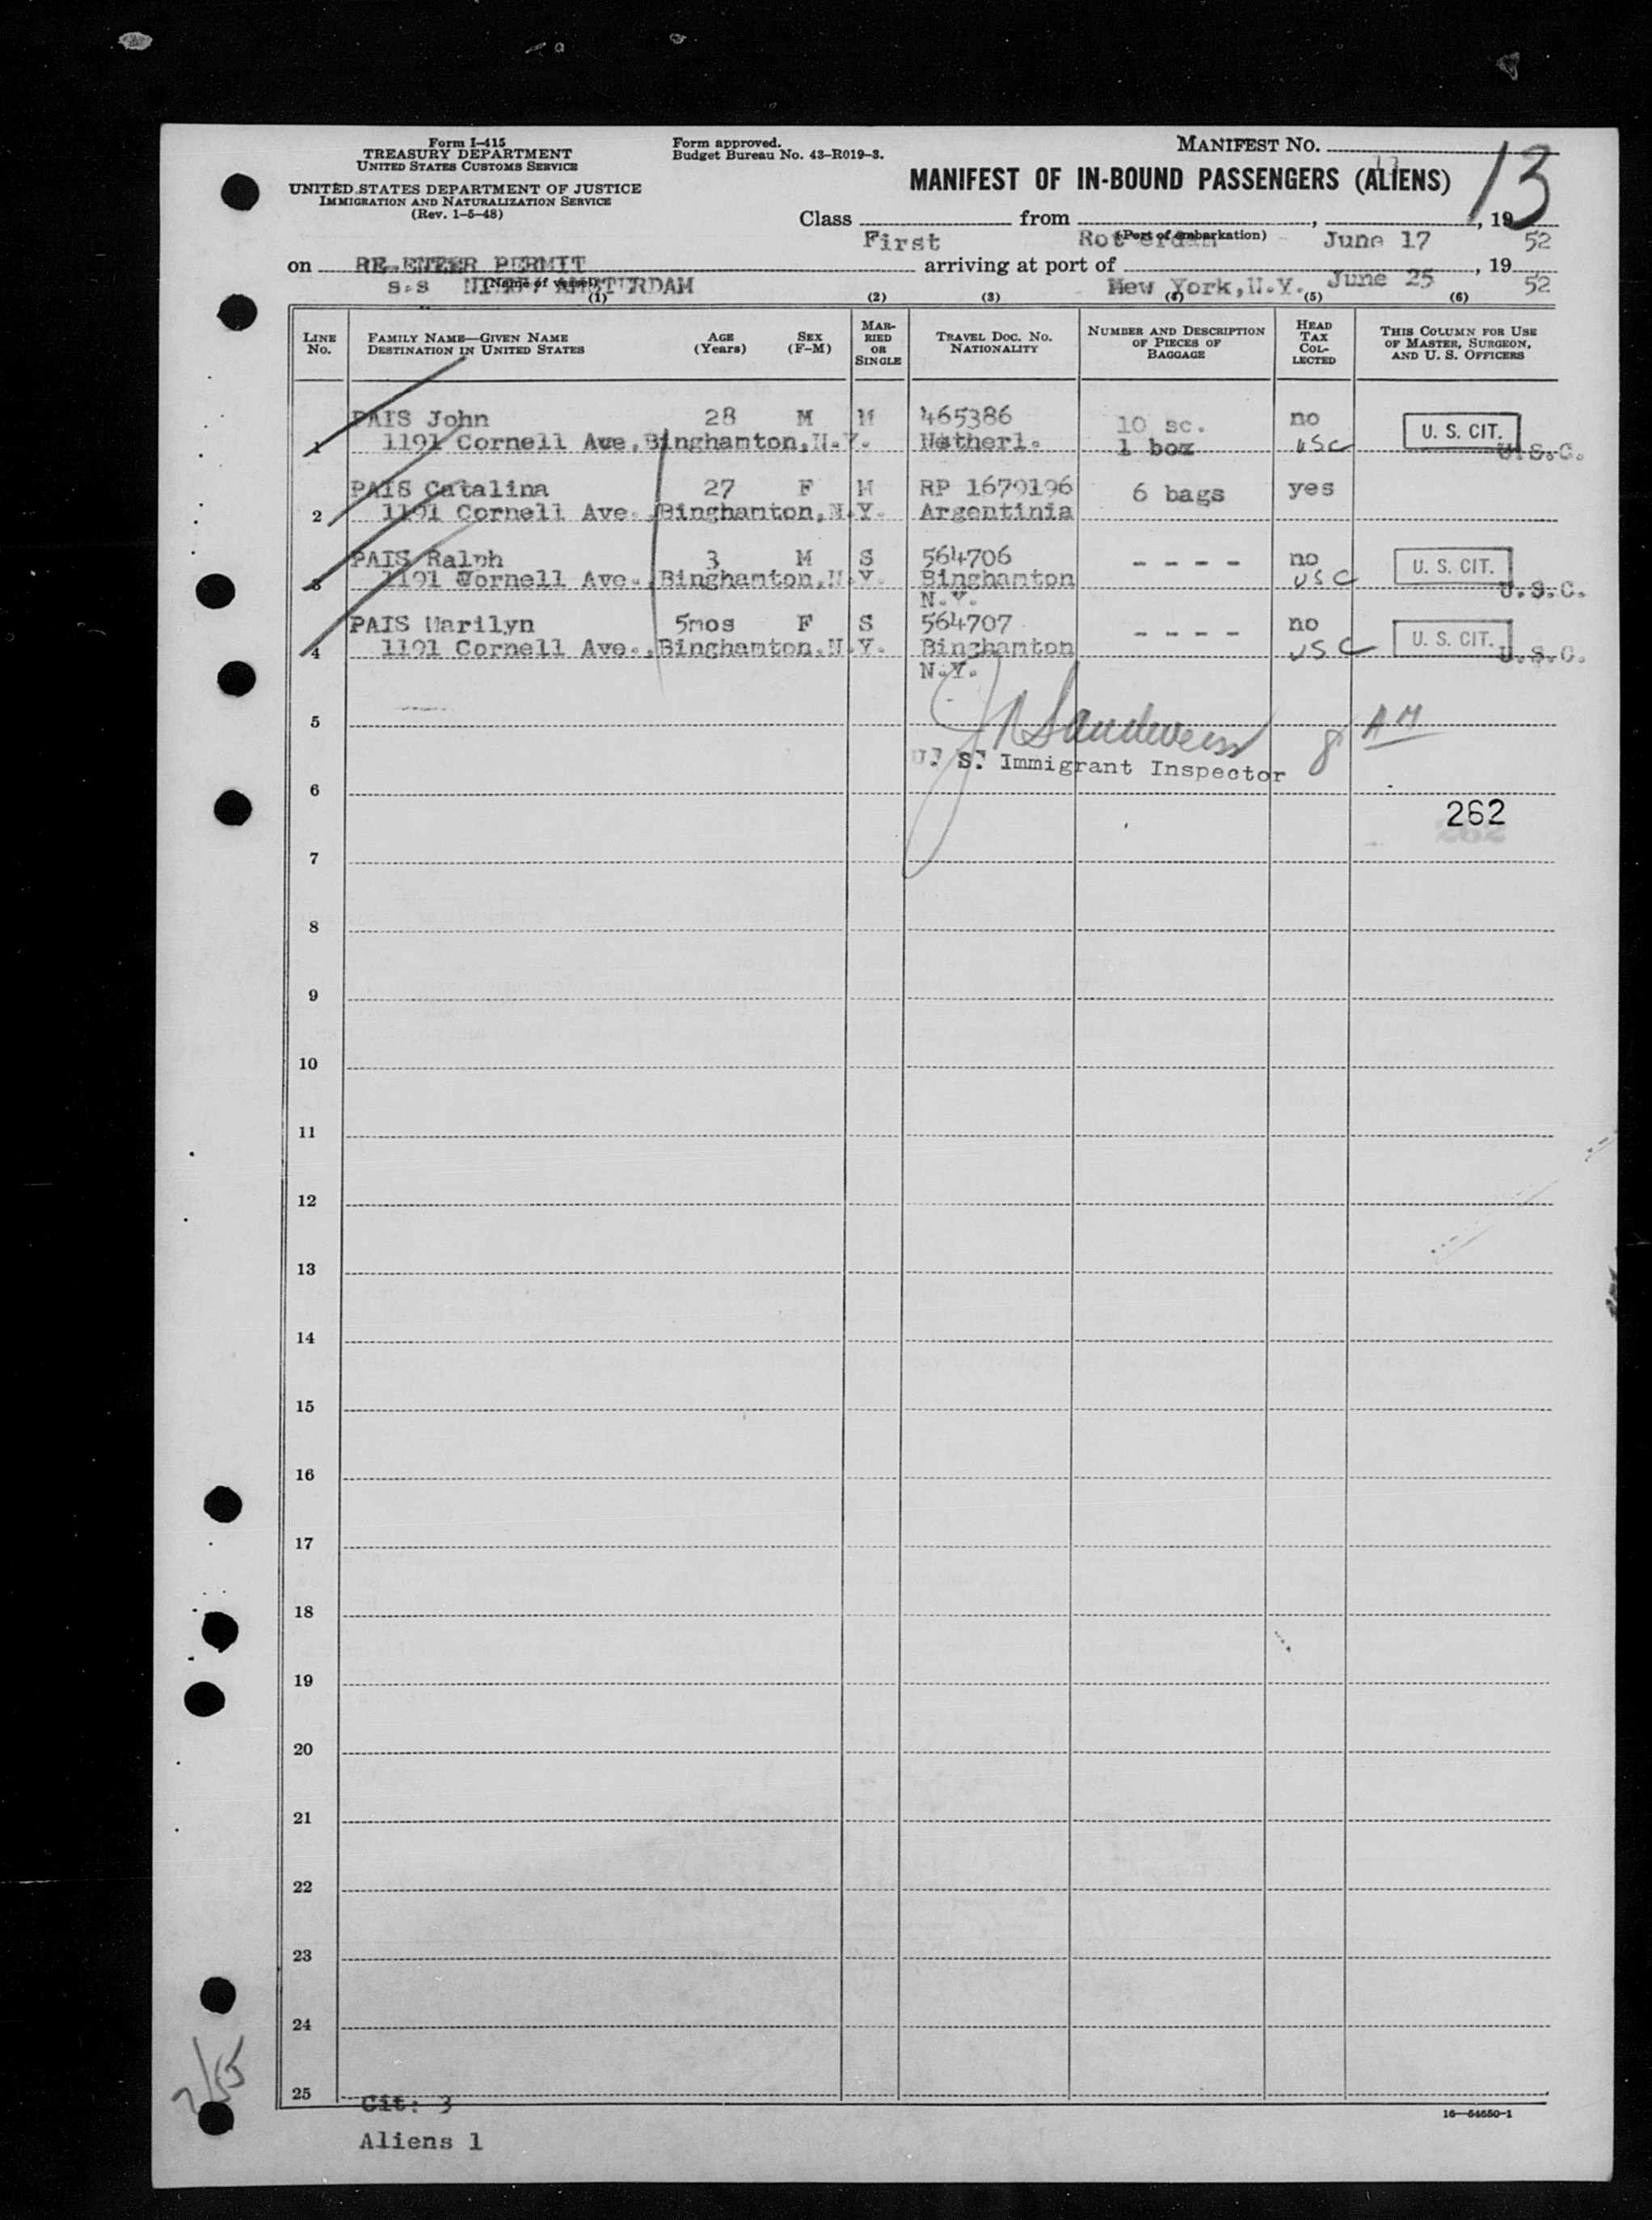 Form I-415
TREASURY DEPARTMENT
UNITED STATES CUSTOMS SERVICE
UNITED STATES DEPARTMENT OF JUSTICE
IMMIGRATION AND NATURALIZATION SERVICE
(Rev. 1-5-48)
Form approved.
Budget Bureau No. 43-R019-3.
MANIFEST NO.
13
MANIFEST OF IN-BOUND PASSENGERS (ALIENS)
Class from , , 19
First Rotterdam (Port of embarkation) June 17 52
on RE-ENTER PERMIT arriving at port of , 19
s.s NIEUW AMSTERDAM (Name of vessel) New York, N.Y. June 25 52
(1) (2) (3) (4) (5) (6)
LINE No. FAMILY NAME—GIVEN NAME DESTINATION IN UNITED STATES AGE (Years) SEX (F-M) MARRIED OR SINGLE TRAVEL DOC. NO. NATIONALITY NUMBER AND DESCRIPTION OF PIECES OF BAGGAGE HEAD TAX COLLECTED THIS COLUMN FOR USE OF MASTER, SURGEON, AND U. S. OFFICERS
PAIS John 28 M M 465386 10 sc. no U. S. CIT.
1 1191 Cornell Ave, Binghamton, N.Y. Netherl. 1 box USC U.S.C.
PAIS Catalina 27 F M RP 1679196 6 bags yes
2 1191 Cornell Ave. Binghamton, N.Y. Argentinia
PAIS Ralph 3 M S 564706 - - - - no U. S. CIT.
3 1191 Cornell Ave., Binghamton, N.Y. Binghamton USC U.S.C.
N.Y.
PAIS Marilyn 5mos F S 564707 - - - - no U. S. CIT.
4 1191 Cornell Ave., Binghamton. N.Y. Binghamton USC U.S.C.
N.Y.
5
U. S. Immigrant Inspector
6
262
7
8
9
10
11
12
13
14
15
16
17
18
19
20
21
22
23
24
25
Cit: 3
16—54650-1
Aliens 1